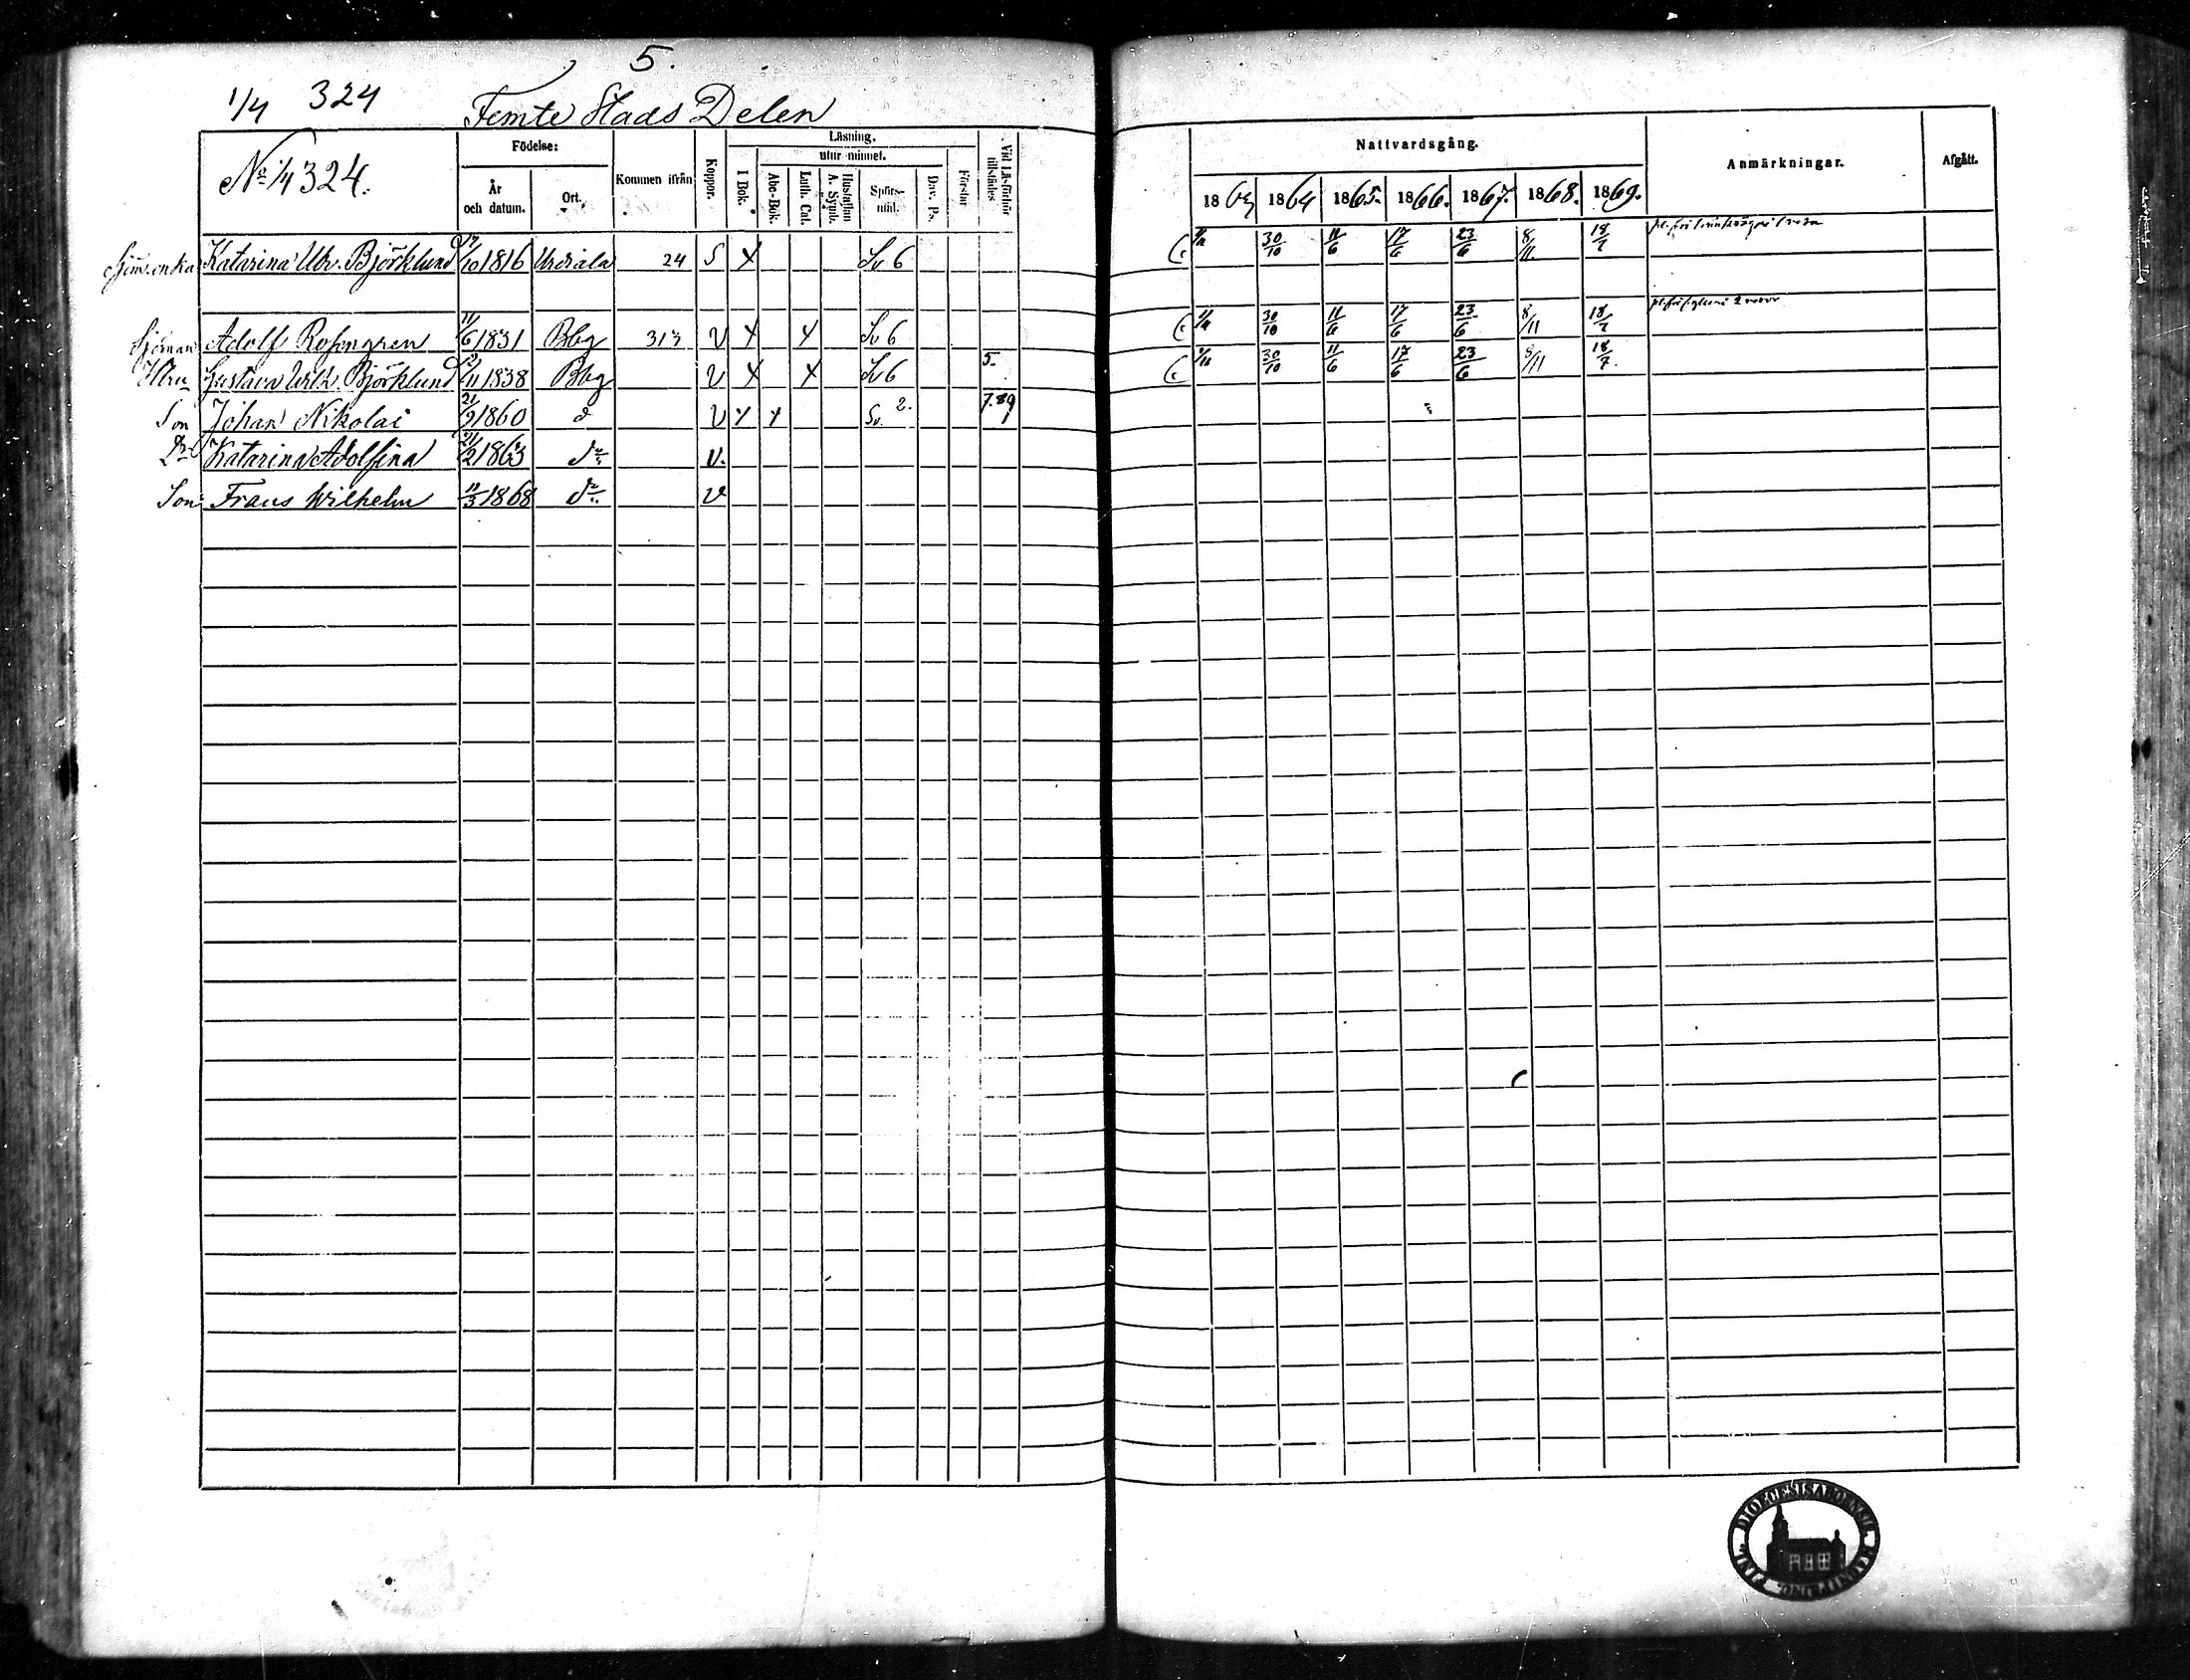 5.
1/4 324 Femte Stads Delen
No 1/4 324.
Födelse:
År och datum.
Ort.
Kommen ifrån
Koppor.
Läsning.
I Bok.
utur minnet.
Abc-Bok.
Luth. Cat.
Hustaflan A. Symb.
Spörsmål.
Dav. Ps.
Förstår
Vid Läsförhör tillstädes
Nattvardsgång.
1863 1864 1865. 1866. 1867. 1868. 1869.
Anmärkningar.
Afgått.
Katarina Ulr. Björklund 10 1816 Urdiala 24 S X Sv 6 30/10 11/6 17/6 23/6 8/11 18/7
Sjöman Adolf Rosengren 11/6 1831 Bbg 313 V X X Sv 6 30/10 11/6 17/6 23/6 8/11 18/7
Hru Gustava Ulr. Björklund 11 1838 Bbg V X X Sv 6 5. 30/10 11/6 17/6 23/6 8/11 18/7.
Son Johan Nikolai 21/9 1860 d V X X Sv. 2. 7.89
Katarina Adolfina 21/2 1863 do V.
Son Frans Wilhelm 11/3 1868 do V
DIOECESIS ABOENSIS